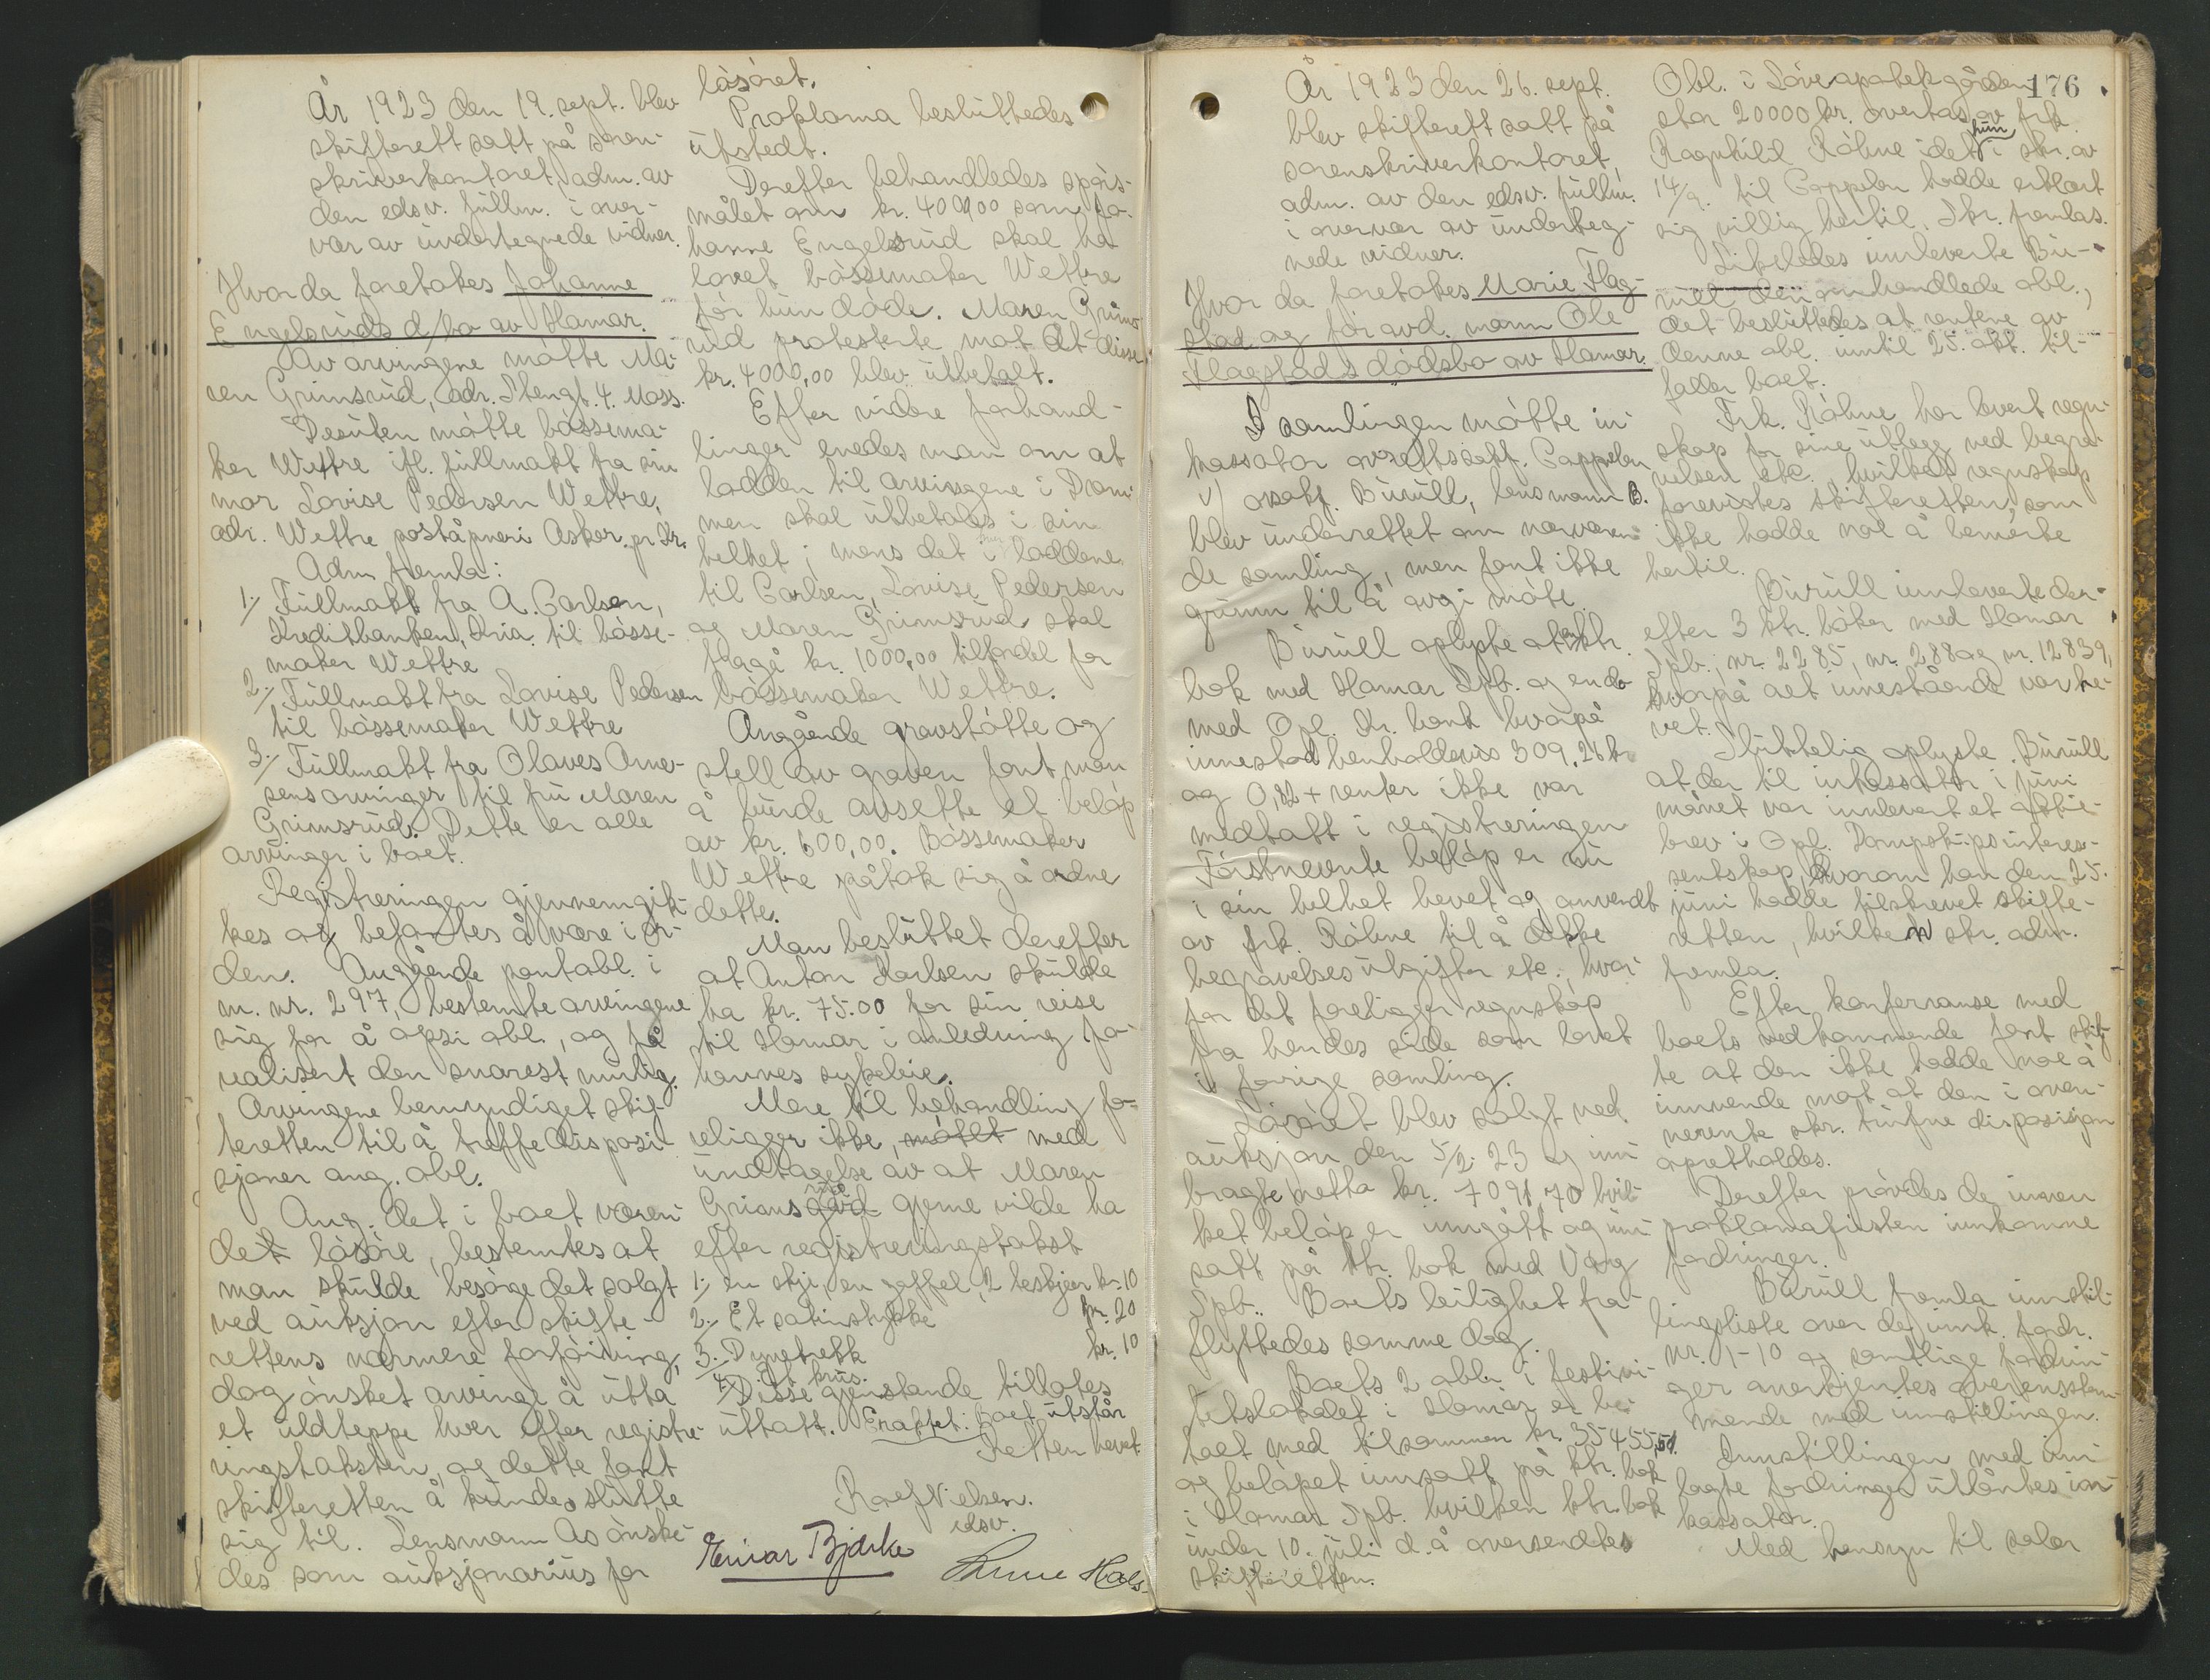 År 1923 den 19. sept. blev
skifterett satt på soren-
skriverkontoret, adm. av
den edsv. fullm. i over-
vær av undertegnede vidner.
Hvor da foretokes Johanne
Engelsruds d/bo av Hamar.
Av arvingene møtte Ma-
ren Grimsrud, adr. Thengt. 4. Moss.
Desuten møtte bøssema-
ker Wettre ifl. fullmakt fra sin
mor Lovise Pedersen Wettre,
adr. Wettre poståpneri Asker pr. Dr.
Adm. fremla:
1./ Fullmakt fra A. Carlsen,
Kreditbanken, Kria. til bøsse-
maker Wettre
2./ Fullmakt fra Lovise Pedersen
til bøssemaker Wettre
3./ Fullmakt fra Olaves Arne-
sens arvinger til fru Maren
Grimsrud. Dette er alle
arvinger i boet.
Registreringen gjennemgik-
kes og befantes å være i or-
den. Angående pantobl. i
m. nr. 297, bestemte arvingene
sig for å opsi obl., og få
realisert den snarest mulig.
Arvingene bemyndiget skif-
teretten til å treffe disposi-
sjoner ang. obl.
Ang. det i boet væren-
det løsøre, bestemtes at
man skulde besørge det solgt
ved auksjon efter skifte-
rettens nærmere forføining,
dog ønsket arvinge å utta
et uldteppe hver efter registre-
ringstaksten, og dette fant
skifteretten å kunde slutte
sig til. Lensmann As ønske-
des som auksjonarius for
løsøret.
Proklama besluttedes
utstedt.
Derefter behandledes spørs-
målet om kr. 4000,00 som Jo-
hanne Engelsrud skal ha
lovet bøssemaker Wettre
før hun døde. Maren Grims-
rud protesterte mot at disse
kr. 4000,00 blev utbetalt.
Efter videre forhand-
linger enedes man om at
lodden til arvingene i Dram-
men skal utbetales i sin
helhet; mens det i loddene
til Carlsen, Lovise Pedersen
og Maren Grimsrud skal
fragå kr. 1000,00 tilfordel for
bøssemaker Wettre.
Angående gravstøtte og
stell av graven fant man
å burde avsette et beløp
av kr. 600,00. Bøssemaker
Wettre påtok sig å ordne
dette.
Man besluttet derefter
at Anton Karlsen skulde
ha kr. 75.00 for sin reise
til Hamar i anledning Jo-
hannes sykeleie.
Mere til behandling fo-
religger ikke, møtt med
undtagelse av at Maren
Grimsrud gjerne vilde ha
efter registreringstakst
1./ en skje, en gaffel, 2 teskjeer kr. 10
2./ Et satinstykke kr. 20
3./ Dynetrekk kr. 10
4./ krus.
Disse gjenstande tillotes
uttatt. Eraktet: Boet utstår
Retten hevet
Roef Nielsen.
edsv.
Einar Bjørke
176
År 1923 den 26. sept.
blev skifterett satt på
sorenskriverkontoret,
adm. av den edsv. fullm.
i overvær av underteg-
nede vidner.
Hvor da foretokes Marie Flag-
stad og før avd. mann Ole
Flagstads dødsbo av Hamar.
I samlingen møtte in-
kassator overettssakf. Cappelen
v/ orsakf. Burull, lensmann B.
blev underrettet om nærværen-
de samling, men fant ikke
grunn til å avgi møte.
Burull oplyste at ktr.
bok med Hamar Spb. og en do
med Opl. Kr. bank hvorpå
innestod henholdsvis 309.26 kr.
og 0,82 + renter ikke var
medtatt i registreringen
Førstnevnte beløp er nu
i sin helhet hevet og anvendt
av frk. Råhne til å dekke
begravelsesutgifter etc., hvor-
for det foreligger regnskap
fra hendes side som lovet
i forrige samling.
Løsøret blev solgt ved
auksjon den 5/2. 23 og inn-
bragte netto kr. 7091,70 hvil-
ket beløp er inngått og inn-
satt på ktr. bok med Vang
Spb.. Boets leilighet fra-
flyttedes samme dag.
Boets 2 obl. i festivi-
tetslokalet i Hamar er be-
talt med tilsammen kr. 35455,51.
og beløpet innsatt på ktr. bok
i Hamar Spb. hvilken ktr. bok
under 10. juli d. å oversendtes
skifteretten.
Obl. i Løveapotekgården
stor 20000 kr. overtas av frk.
Ragnhild Råhne idet hun i skr. av
14/9. til Cappelen hadde erklært
sig villig hertil. Skr. fremlas.
Likeledes innleverte Bu-
rull den omhandlede obl.,
det besluttedes at rentene av
denne obl. inntil 25. okt. til-
faller boet.
Frk. Råhne har levert regn-
skap for sine utlegg ved begra-
velsen etc. hvilket regnskap
forevistes skifteretten, som
ikke hadde noe å bemerke
hertil.
Burull innleverte der-
efter 3 ktr. bøker med Hamar
Spb., nr. 2285, nr. 288 og nr. 12839,
hvorpå alt innestående var he-
vet.
Sluttelig oplyste Burull
at der til inkassator i juni
måned var innlevert et aktie-
brev i Opl. Dampskipsinteres-
sentskap, hvorom han den 25.
juni hadde tilskrevet skifte-
retten, hvilken skr. adm.
fremla.
Efter konferranse med
boets vedkommende fant skif-
te at den ikke hadde noe å
innvende mot at den i oven-
nevnte skr. trufne disposisjon
opretholdes.
Derefter prøvdes de innen
proklamafristen innkomne
fordringer.
Burull fremla innstil-
lingsliste over de innk. fordr.
nr. 1-10 og samtlige fordrin-
ger anerkjentes overensstem-
mende med innstillingen.
Innstillingen med inn-
lagte fordringer utlåntes in-
kassator.
Med hensyn til salær